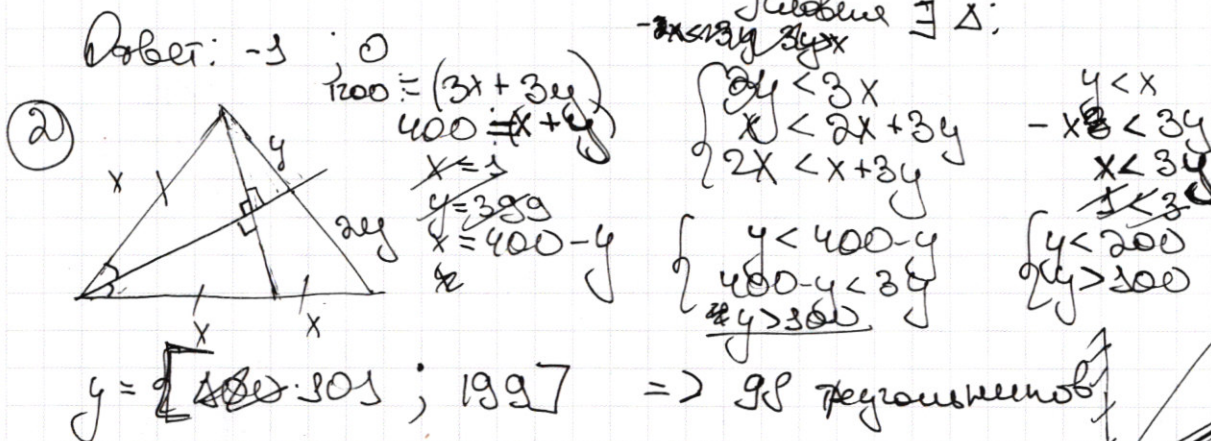 Ответ: -1 ; 0
Условия ∃ Δ:
-3x<3y 3y>x
②
1200 = (3x + 3y)
400 = (x + y)
x = 1
y = 399
x = 400 - y
x y
2y
x x
{ 3y < 3x
x < 2x + 3y
2x < x + 3y
y < x
- x < 3y
x < 3y
1 < 3
{ y < 400 - y
400 - y < 3y
y > 100
{ y < 200
y > 100
y = [101 ; 199] => 98 треугольников